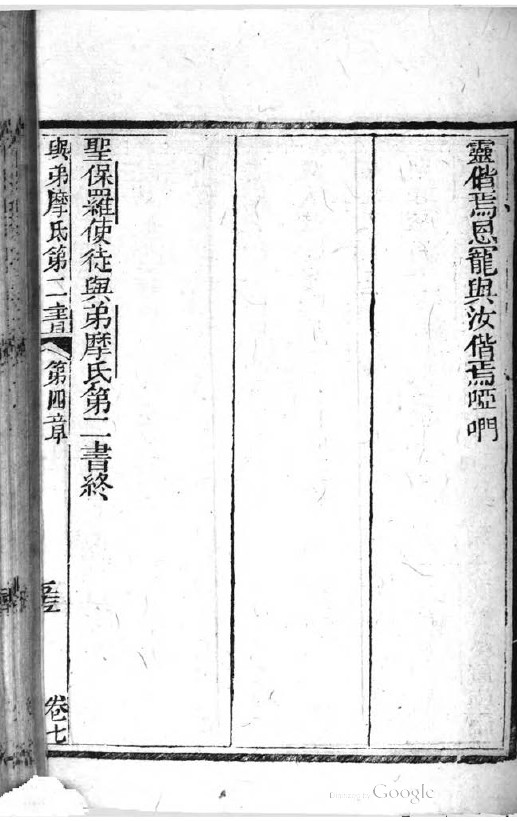 靈偕焉恩寵與汝偕焉啞們
聖保羅使徒與弟摩氏第二書終
與弟摩氏第二書 第四章
卷七
Google